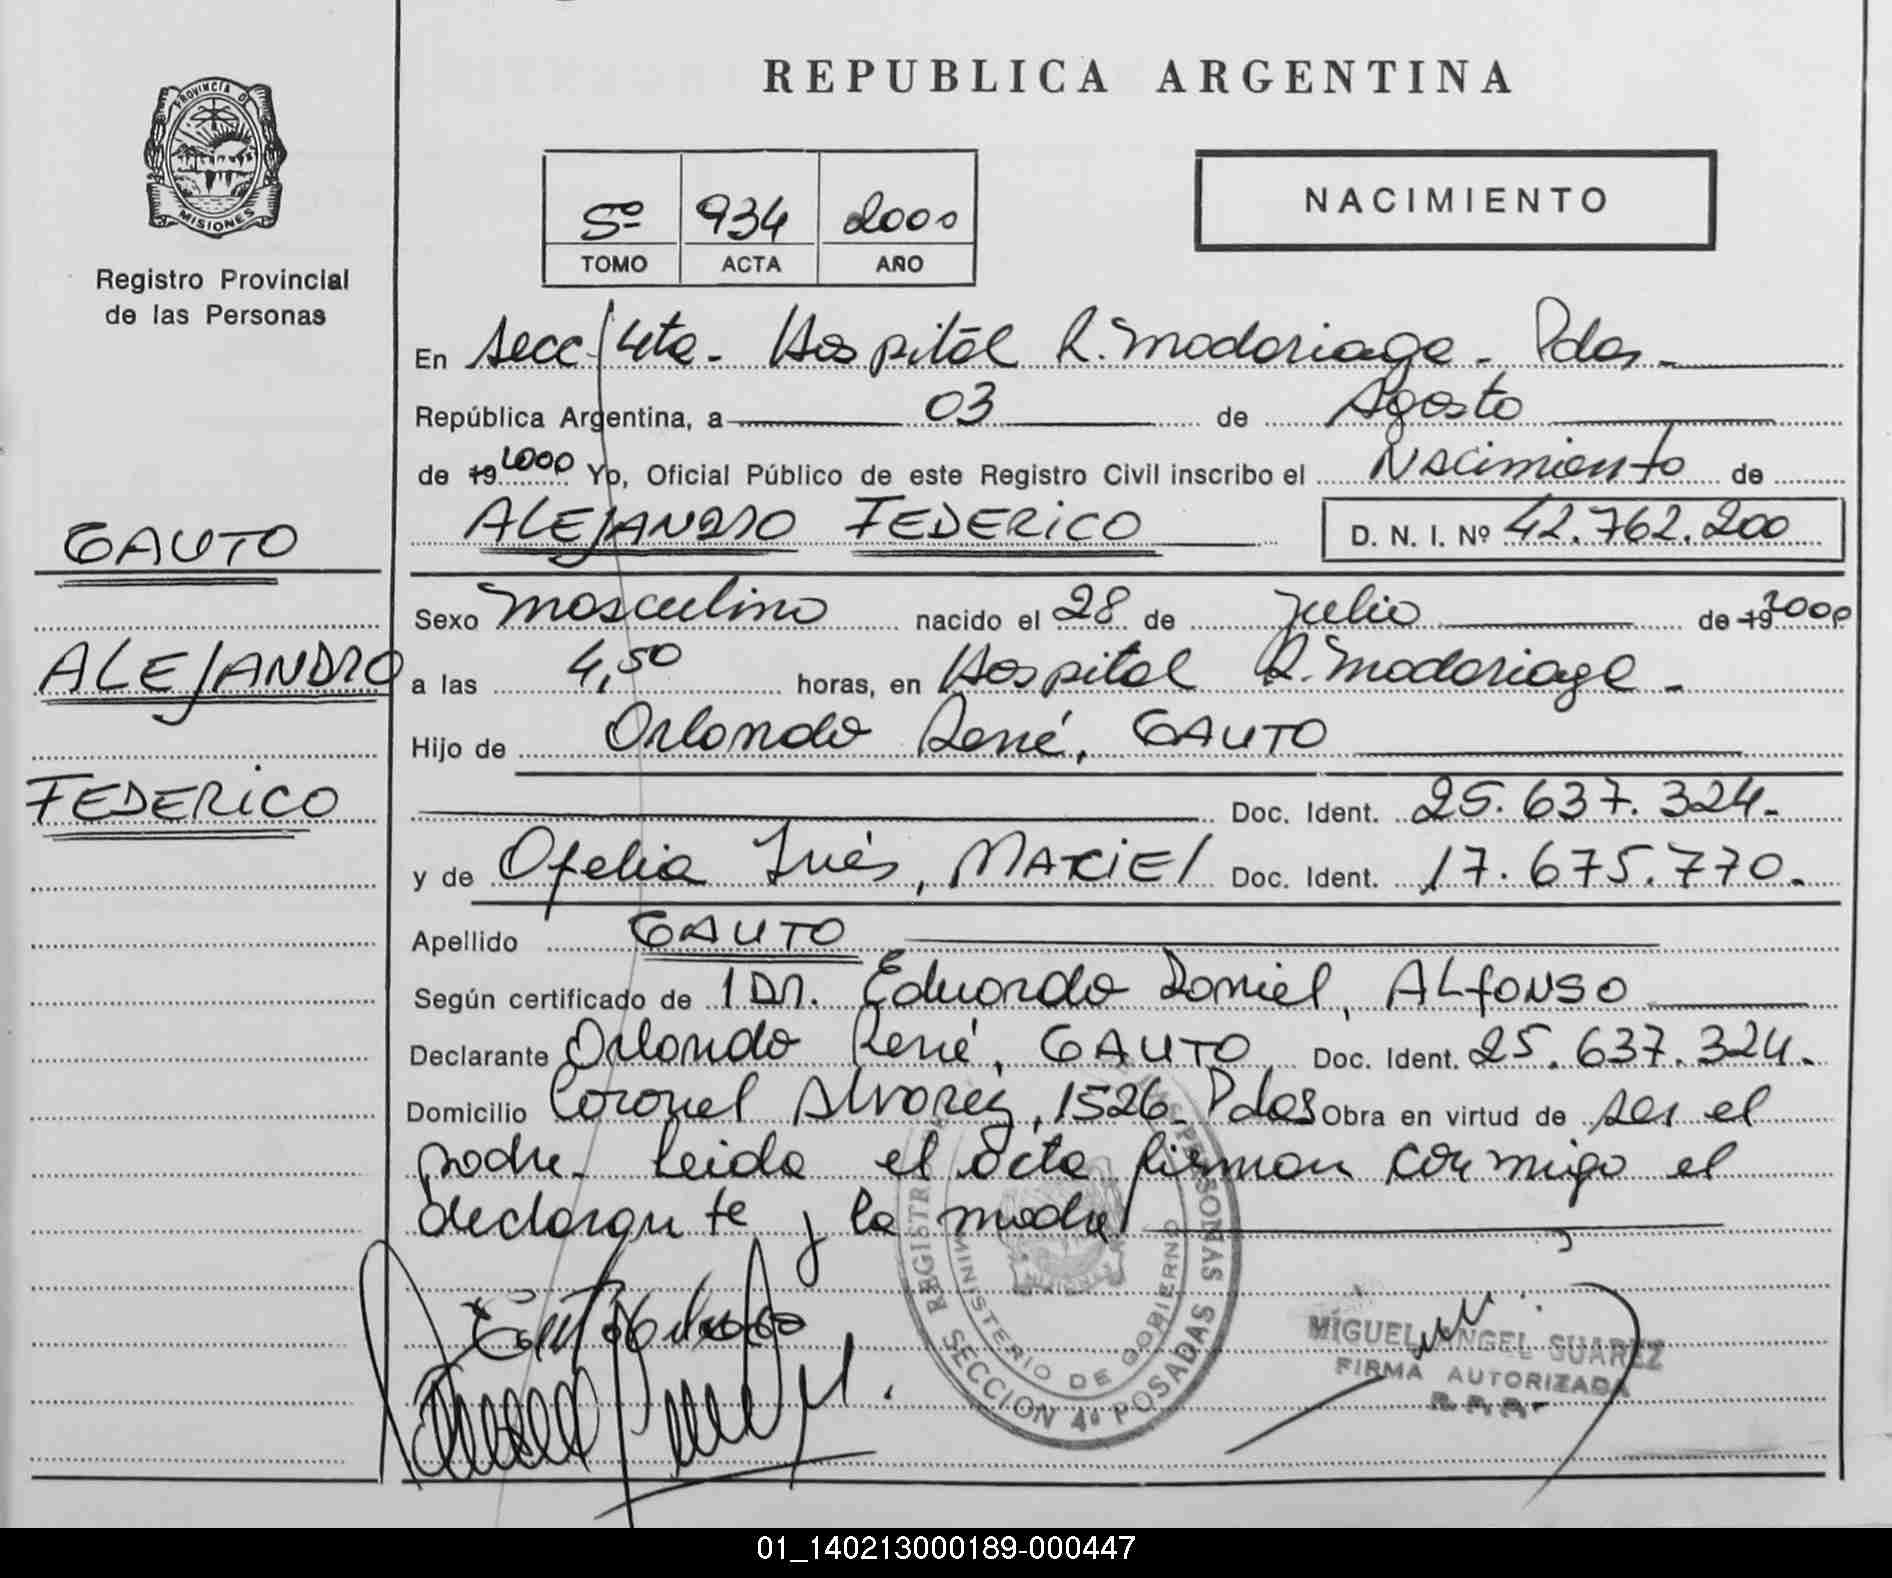 REPUBLICA ARGENTINA
PROVINCIA DE
MISIONES
Registro Provincial
de las Personas
5º 934 2000
TOMO ACTA AÑO
NACIMIENTO
En Secc. 4ta. Hospital R. Madariaga. Pdas.
República Argentina, a 03 de Agosto
de 19 2000 Yo, Oficial Público de este Registro Civil inscribo el Nacimiento de
ALEJANDRO FEDERICO D. N. I. Nº 42.762.200
GAUTO
ALEJANDRO
FEDERICO
Sexo Masculino nacido el 28 de Julio de 19 2000
a las 4,50 horas, en Hospital R. Madariaga.
Hijo de Orlando René, GAUTO
Doc. Ident. 25.637.324.
y de Ofelia Inés, MACIEL Doc. Ident. 17.675.770.
Apellido GAUTO
Según certificado de Dr. Eduardo Daniel, ALFONSO
Declarante Orlando René, GAUTO Doc. Ident. 25.637.324.
Domicilio Coronel Alvarez, 1526. Pdas Obra en virtud de ser el
padre. Leida el acta firman conmigo el
declarante y la madre
REGISTRO PERSONAS
MINISTERIO DE GOBIERNO
SECCION 4ª POSADAS
MIGUEL ANGEL SUAREZ
FIRMA AUTORIZADA
R. P. P.
01_140213000189-000447